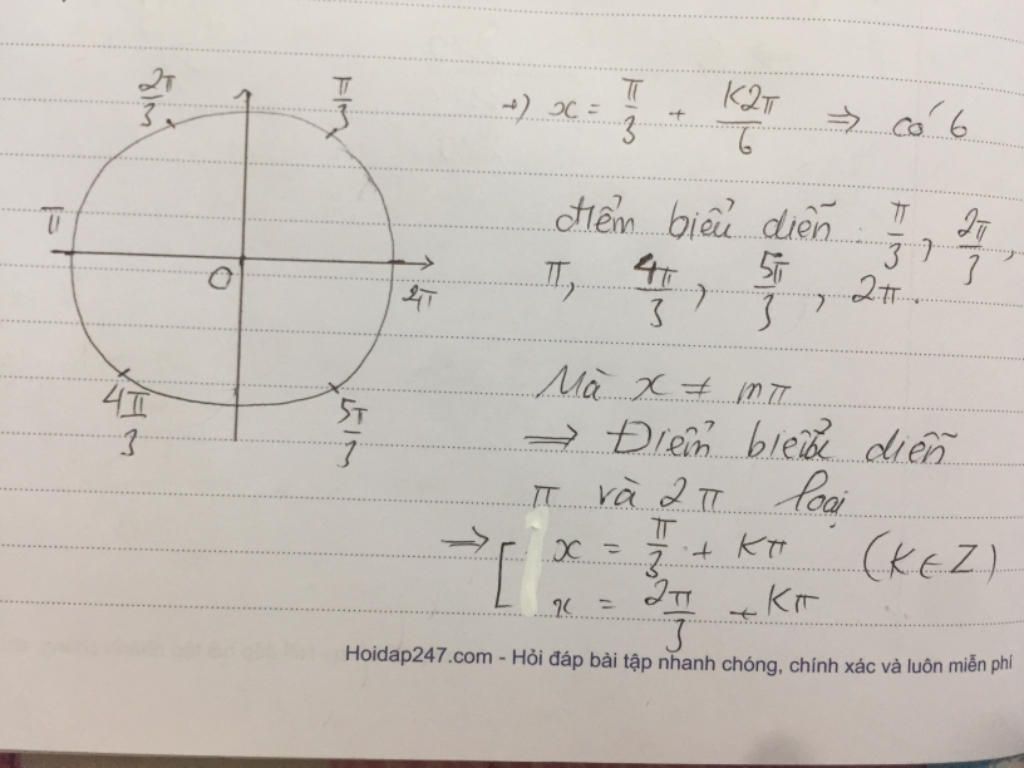 2π/3
π/3
π
O
2π
4π/3
5π/3
+) x = π/3 + K2π/6 ⇒ có 6
điểm biểu diễn: π/3, 2π/3,
π, 4π/3, 5π/3, 2π.
Mà x ≠ mπ
⇒ Điểm biểu diễn
π và 2π loại
⇒ [ x = π/3 + Kπ (K ∈ Z)
x = 2π/3 + Kπ
Hoidap247.com - Hỏi đáp bài tập nhanh chóng, chính xác và luôn miễn phí